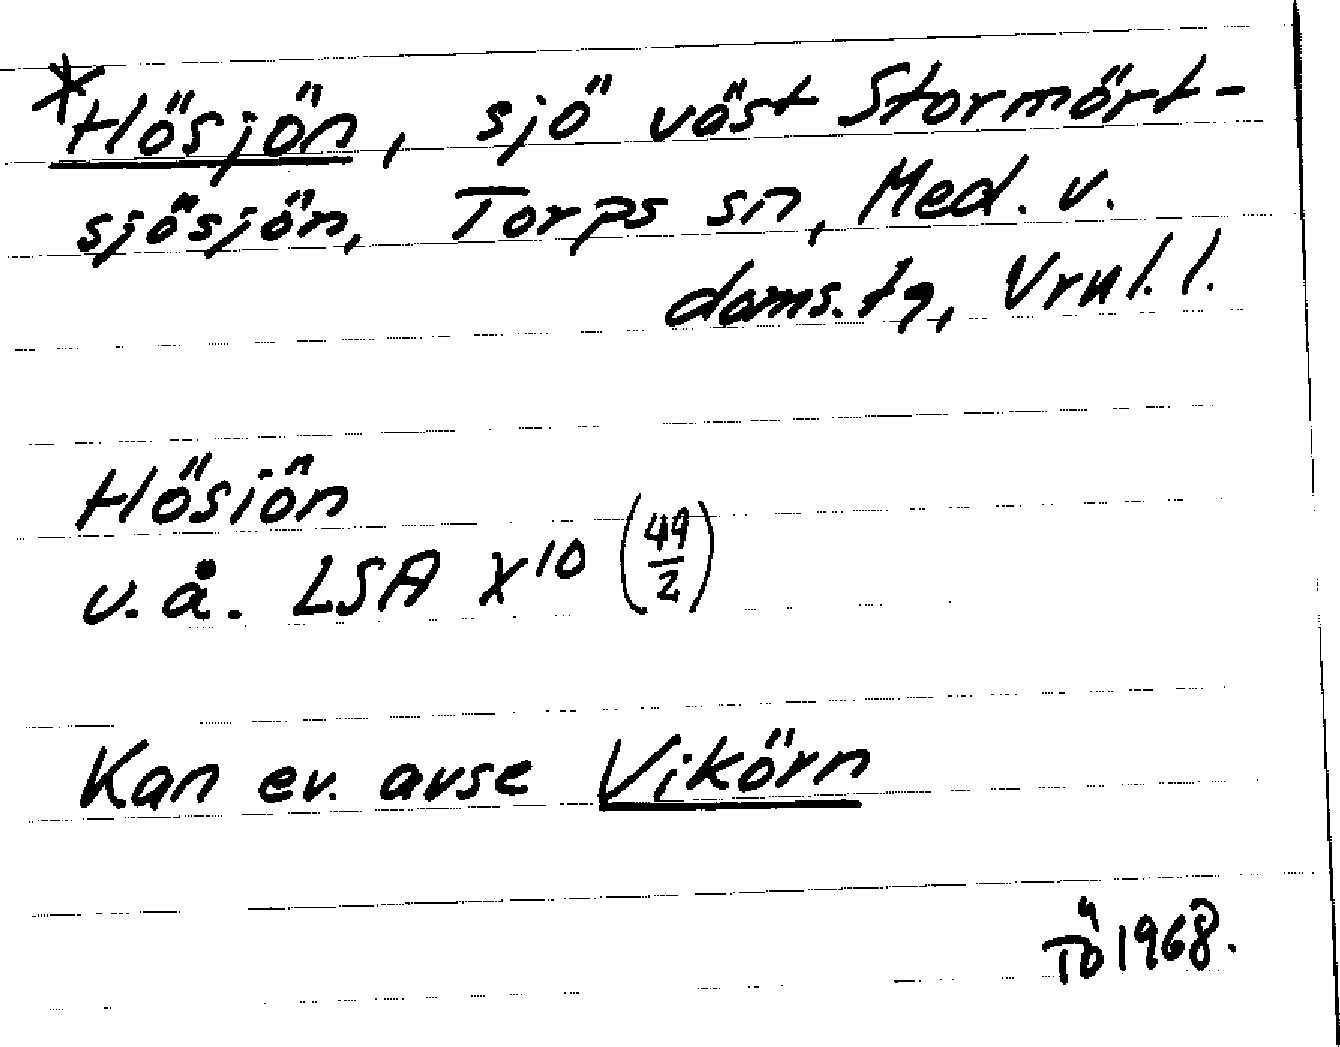 *Hösjön, sjö väst Stormört-
sjösjön, Torps sn, Med. v.
doms.tg, Vrnl. l.
Hösiön
v.å. LSA X10 (49/2)
Kan ev. avse Vikörn
TÖ 1968.